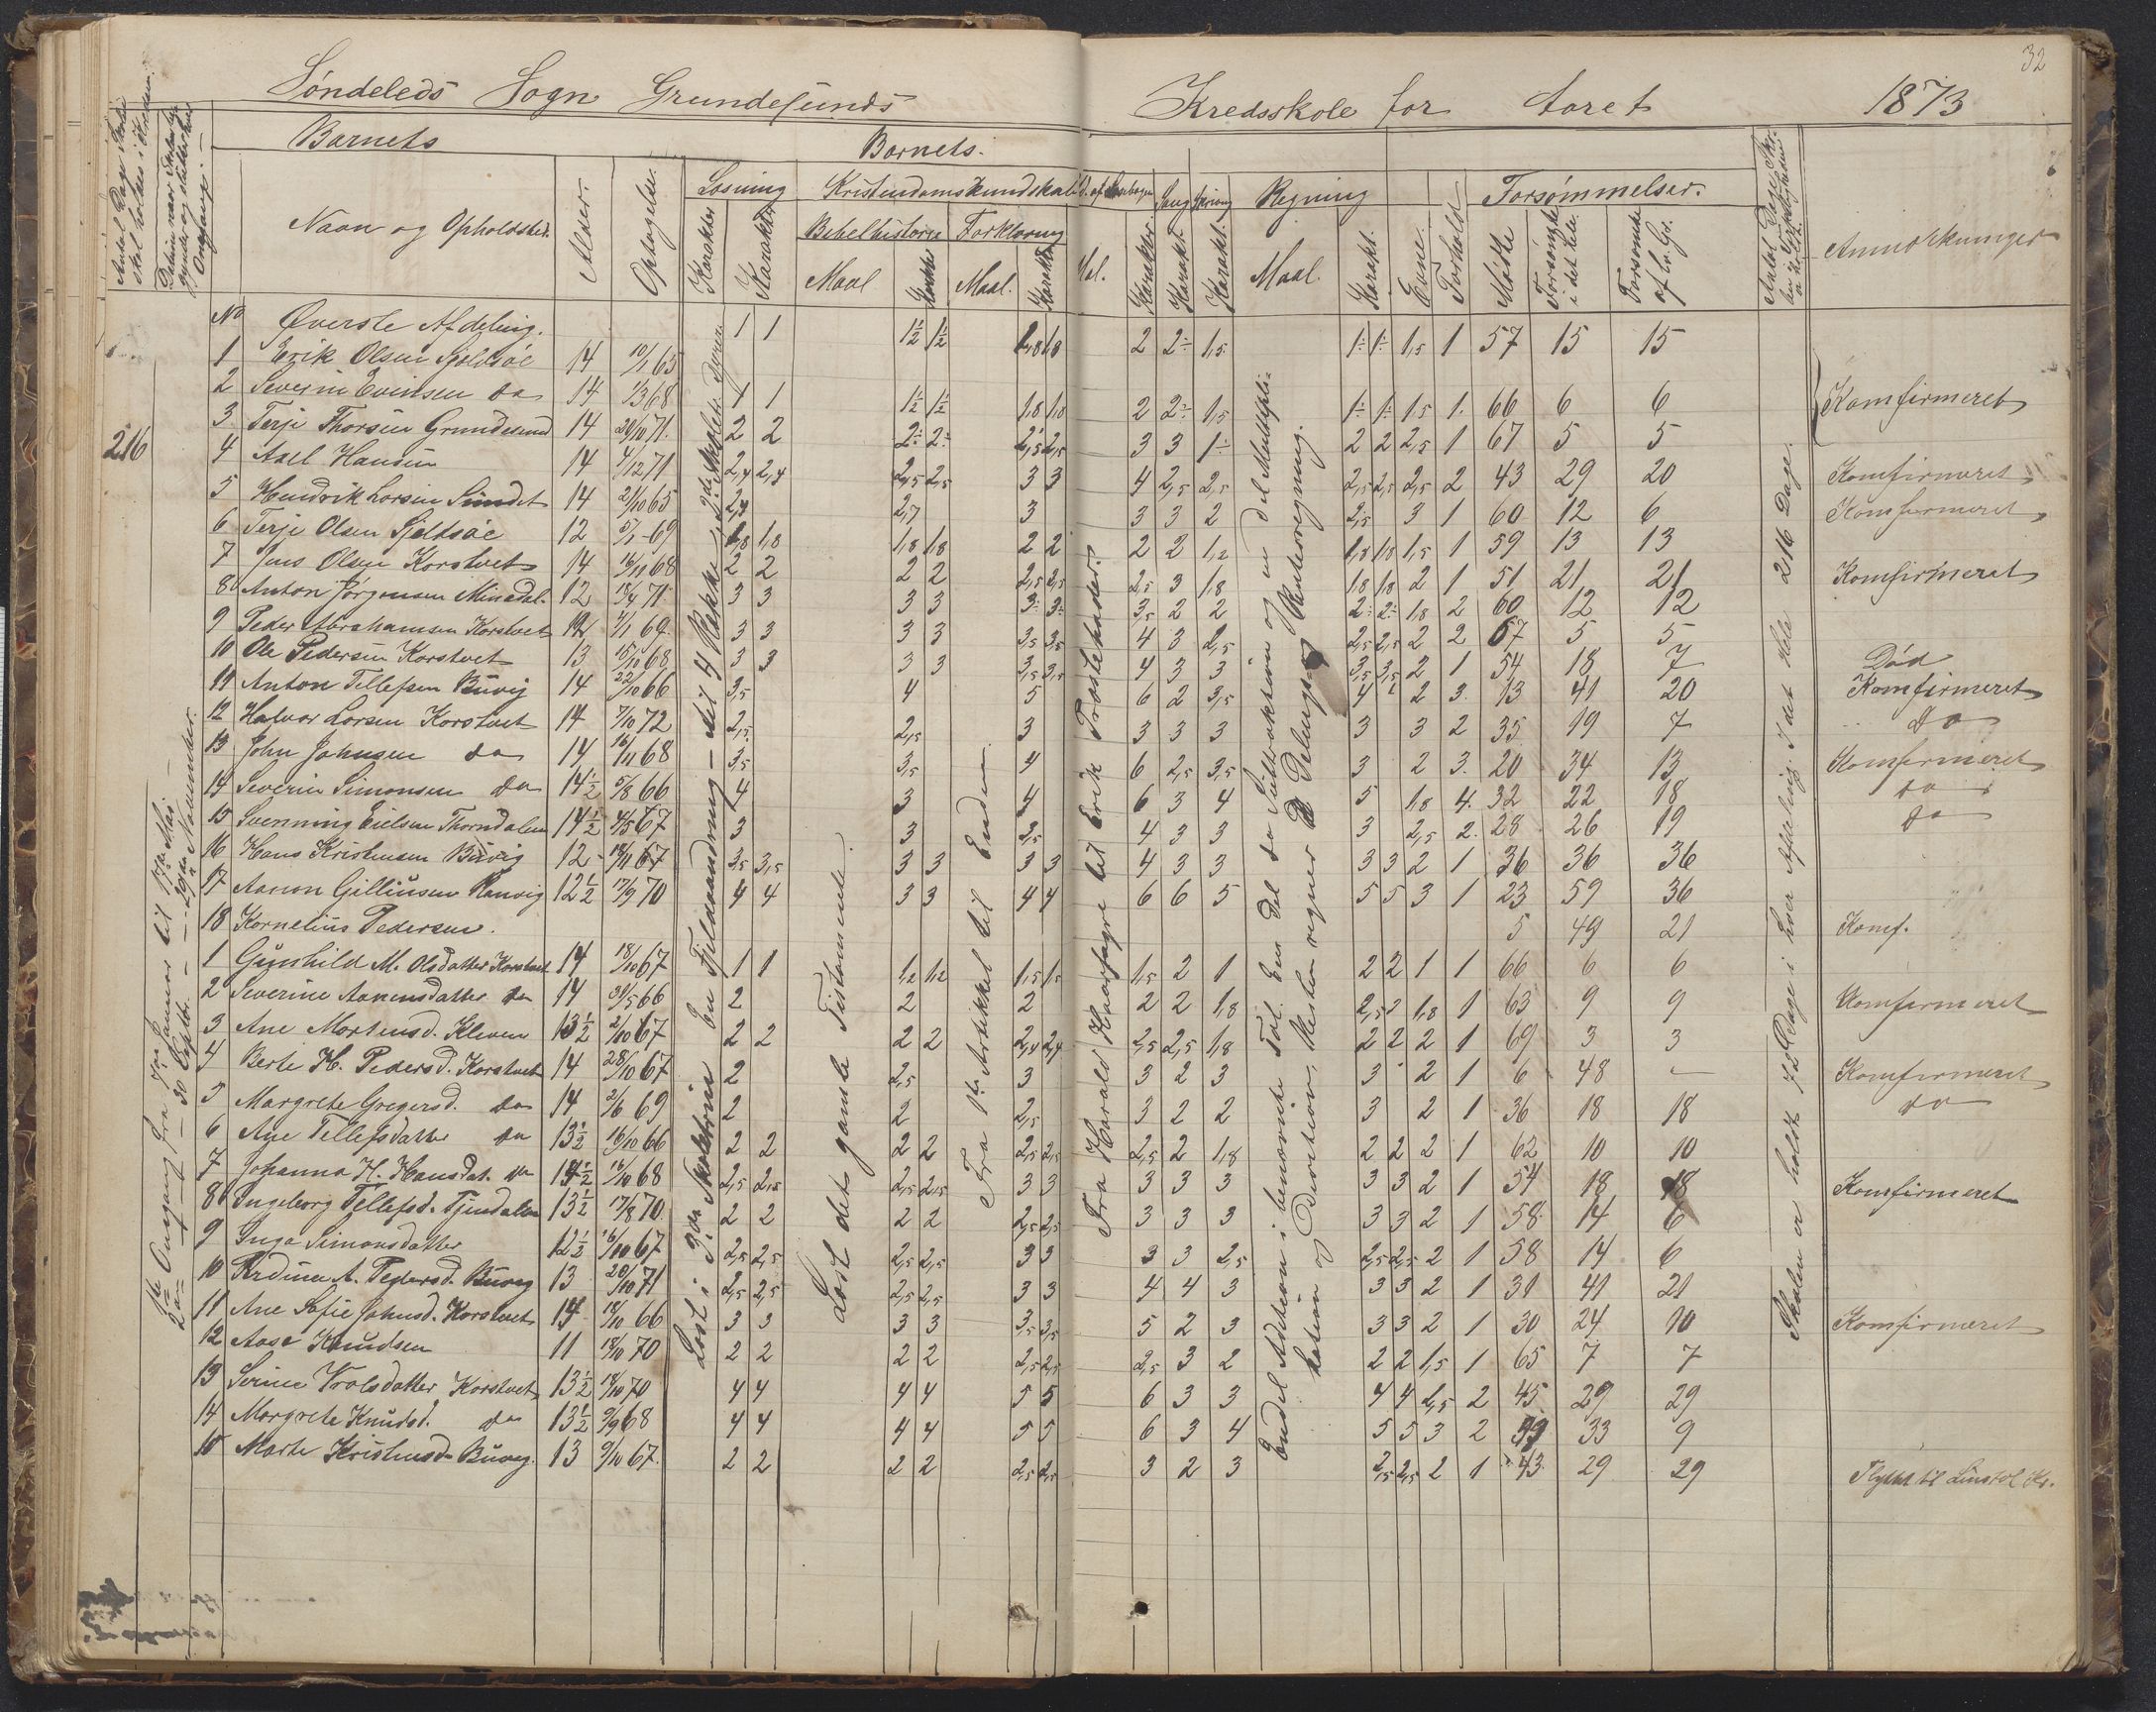 32
Søndeleds Sogn Grundesunds Kredsskole for Aaret 1873
Barnets Barnets.
Antal Dage Skolen skal holdes i Kredsen.
Navn og Opholdsted. Alder. Optagelse. Læsning Kristendomskundskab Sang Skrivning Regning Forsømmelser. Anmærkninger
Bibelhistorie Forklaring
Karakter Karakter Maal Karakter Maal. Karakter Karakter Karakt. Karakt. Maal. Karakt. Evne. Forhold Mødte Forsømte i det hele. Forsømte af lo. Gr.
216
No Øverste Afdeling.
1 Erik Olsen Sjeltsåe 14 10/1 65 1 1 1½ 1½ 1,8 1,8 2 2÷ 1,5 1÷ 1÷ 1,5 1 57 15 15
2 Severin Evensen do 14 1/3 68 1 1 1½ 1½ 1,8 1,8 2 2÷ 1,5 1÷ 1÷ 1,5 1 66 6 6 Komfirmeret
3 Terje Thorsen Grundesund 14 20/10 71 2 2 2÷ 2÷ 2,5 2,5 3 3 1÷ 2 2 2,5 1 67 5 5
4 Axel Hansen 14 4/12 71 2,4 2,4 2,5 2,5 3 3 4 2,5 2,5 2,5 2,5 2,5 2 43 29 20 Komfirmeret
5 Hendrik Larsen Sundet 14 2/10 65 2,3 2,7 3 3 3 2 2,5 3 1 60 12 6 Komfirmeret
6 Terje Olsen Sjeltsåe 12 5/1 69 1,8 1,8 1,8 1,8 2 2 2 2 1,2 1,8 1,8 1,5 1 59 13 13
7 Jens Olsen Korstvet 14 16/11 68 2 2 2 2 2,5 2,5 2,5 3 1,8 1,8 1,8 2 1 51 21 21 Komfirmeret
8 Anton Jørgensen Minedal. 12 18/4 71 3 3 3 3 3÷ 3÷ 3,5 2 2 2÷ 2÷ 1,8 2 60 12 12
9 Peder Abrahamsen Korstvet 12 7/1 69 3 3 3 3 3,5 3,5 4 3 2,5 2,5 2,5 2 2 67 5 5
10 Ole Pedersen Korstvet 13 15/10 68 3 3 3 3 3,5 3,5 4 3 3 3,5 3,5 2 1 54 18 7 Død
11 Anton Tellefsen Buvig 14 22/10 66 3,5 4 5 6 2 3,5 4 2 3 13 41 20 Komfirmeret
12 Halvor Larsen Korstvet 14 7/10 72 2,5 2,5 3 3 3 3 3 3 2 35 19 7 do
13 John Johnsen do 14 16/11 68 3,5 3,5 4 6 2,5 3,5 3 2 3 20 34 13 Komfirmeret
14 Severin Simonsen do 14½ 5/8 66 4 3 4 6 3 4 5 1,8 4 32 22 18 do
15 Svenning Eielsen Thorndalen 14½ 4/5 67 3 3 2,5 4 3 3 3 2,5 2 28 26 19 do
16 Hans Kristensen Buvig 12 18/11 67 3,5 3,5 3 3 3 3 4 3 3 3 3 2 1 36 36 36
17 Aanon Gilliusen Ranvig 12½ 17/9 70 4 4 3 3 4 4 6 6 5 5 5 3 1 23 59 36
18 Kornelius Pedersen. 5 49 21 Komf.
1 Gunhild M. Olsdatter Korstvet 14 18/10 67 1 1 1,2 1,2 1,5 1,5 1,5 2 1 2 2 1 1 66 6 6
2 Severine Aanensdatter do 14 31/5 66 2 2 2 2 2 1,8 2,5 1,8 1 63 9 9 Komfirmeret
3 Ane Mortensd. Kleven 13½ 2/10 67 2 2 2 2 2,4 2,4 2,5 2,5 1,8 2 2 2 1 69 3 3
4 Berte H. Pedersd. Korstvet 14 28/10 67 2 2,5 3 3 2 3 3 2 1 6 48 — Komfirmeret
5 Margrete Gregersd. do 14 2/6 69 2 2 2,5 3 2 2 3 2 1 36 18 18 do
6 Ane Tellefsdatter do 13½ 16/10 66 2 2 2 2 2,5 2,5 2,5 2 1,8 2 2 2 1 62 10 10
7 Johanna H. Hansdat. do 14½ 16/10 68 2,5 2,5 2,5 2,5 3 3 3 3 3 3 3 2 1 54 18 18 Komfirmeret
8 Ingeborg Tellefsd. Tjendalen 13½ 17/8 70 2 2 2 2 2,5 2,5 3 3 3 3 3 2 1 58 14 6
9 Inga Simonsdatter 12½ 16/10 67 2,5 2,5 2,5 2,5 3 3 3 3 2,5 2,5 2,5 2 1 58 14 6
10 A. Pedersd. Buvig 13 20/10 71 2,5 2,5 2,5 2,5 3 3 4 4 3 3 3 2 1 31 41 21
11 Ane Sofie Johnsd. Korstvet 14 18/10 66 3 3 3 3 3,5 3,5 5 2 3 3 3 2 1 30 24 10 Komfirmeret
12 Aase Knudsen 11 18/10 70 2 2 2 2 2,5 2,5 2,5 3 2 2 2 1,5 1 65 7 7
13 Serine Trolsdatter Korstvet 13½ 18/10 70 4 4 4 4 5 5 6 3 3 4 4 2,5 2 45 29 29
14 Margrete Knudsd. do 13½ 9/9 68 4 4 4 4 5 5 6 3 4 5 5 3 2 39 33 9
15 Marte Kristensd. Buvig. 13 9/10 67 2 2 2 2 2,5 2,5 3 2 3 2,5 2,5 2 1 43 29 29 Flyttet til
1ste Omgang fra 7de Januar til 17de Mai
2den — 30 Septbr. — 29de November.
Læst i 3die Skoletrin En Fjeldvandring – til 4 Række, 2det
Læst det gamle Testamente.
Fra 1ste Artikkel til Enden.
Fra Harald Haarfagre til Erik
Endel Adition i benævnte Tal. En del do Subtraktion og en del Multipli-
kation og Division, Resten regner Delings og Renteregning.
Skolen er holdt 72 Dage i hver Afdeling. I det Hele 216 Dage.